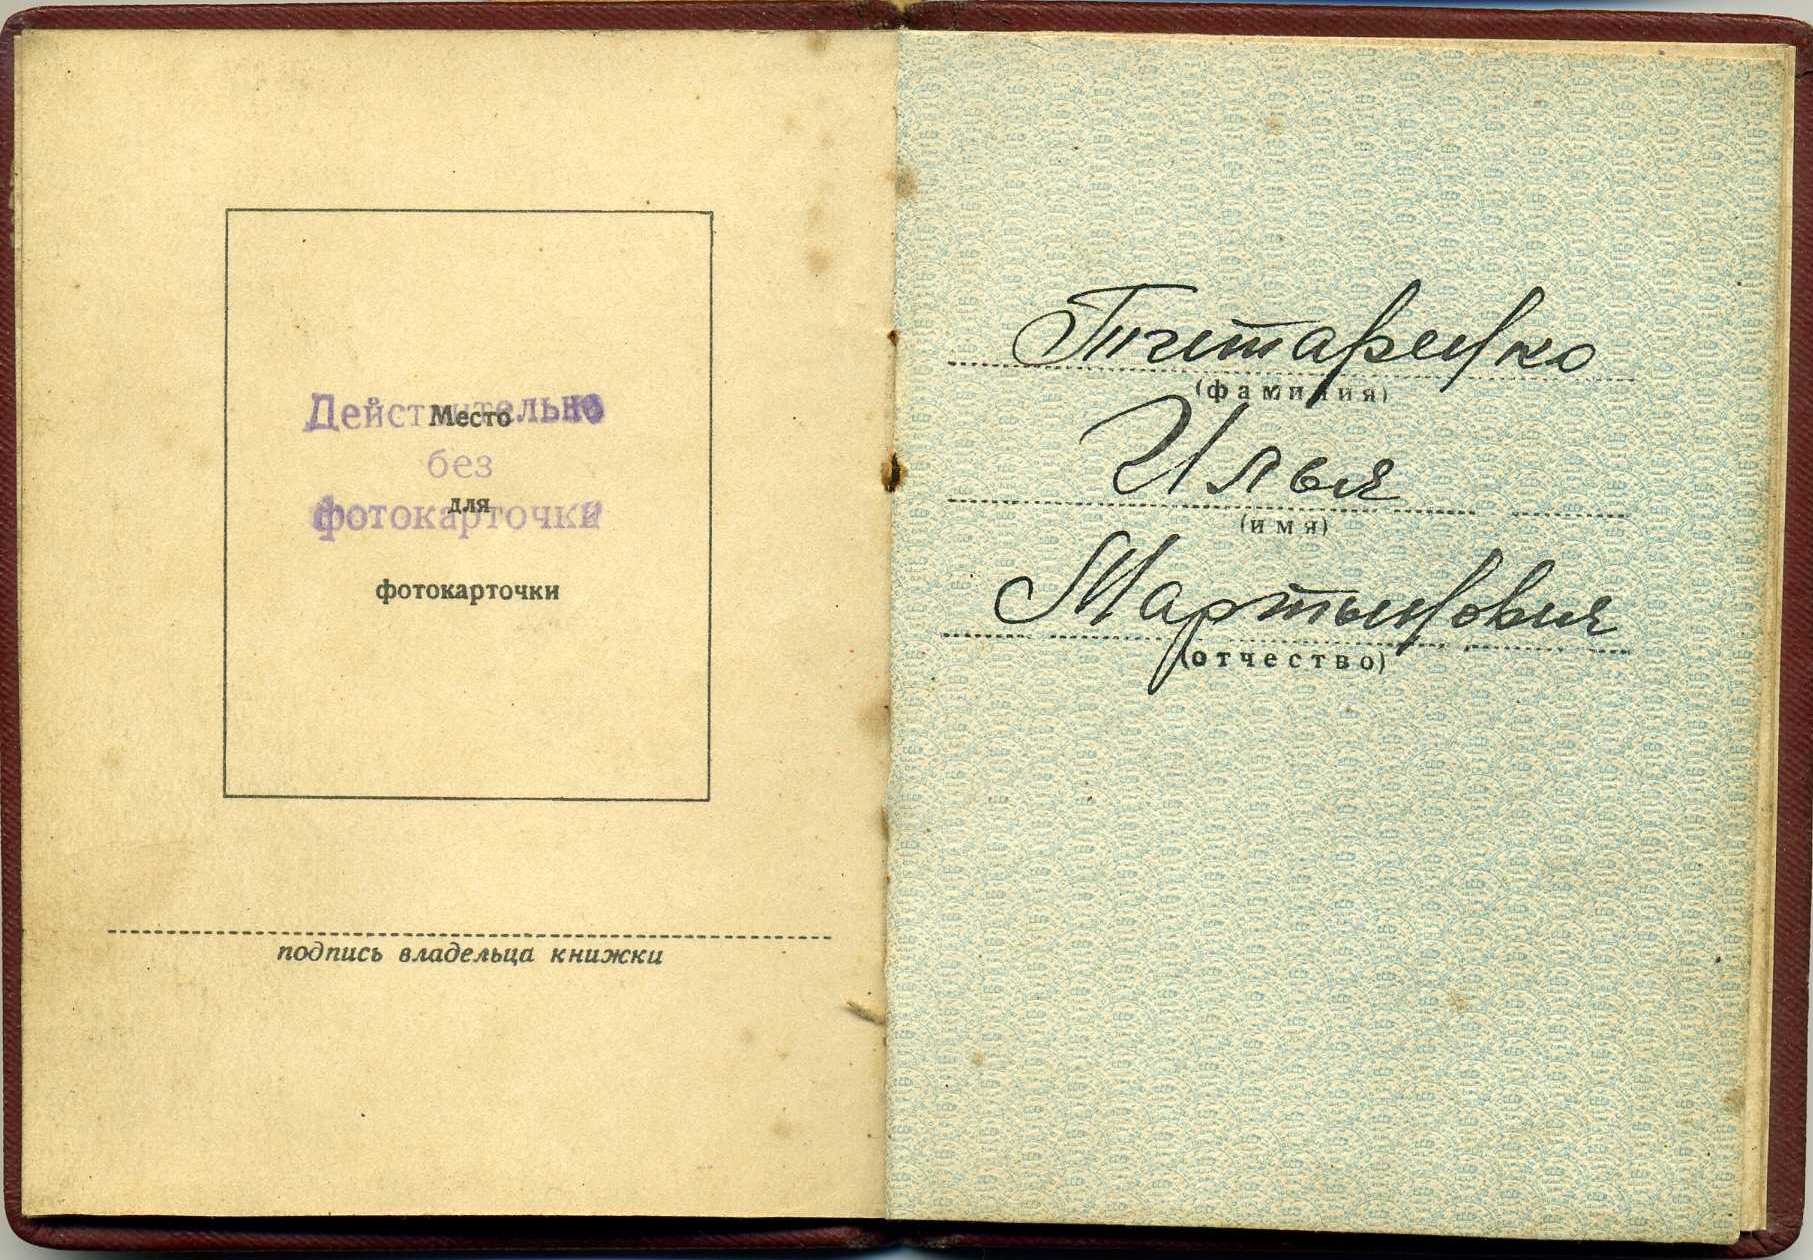 Действительно
Место
без
для
фотокарточки
фотокарточки
подпись владельца книжки
Титаренко
(фамилия)
Илья
(имя)
Мартынович
(отчество)